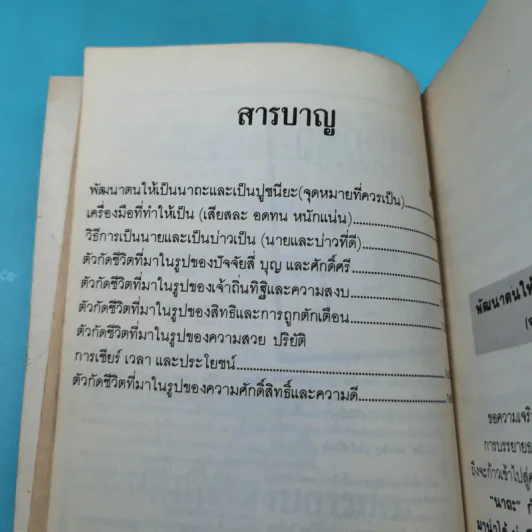 สารบาญ
พัฒนาตนให้เป็นนาถะและเป็นปูชนียะ(จุดหมายที่ควรเป็น)
เครื่องมือที่ทำให้เป็น (เสียสละ อดทน หนักแน่น)
วิธีการเป็นนายและเป็นบ่าวเป็น (นายและบ่าวที่ดี)
ตัวกัดชีวิตที่มาในรูปของปัจจัยสี่ บุญ และศักดิ์ศรี
ตัวกัดชีวิตที่มาในรูปของเจ้าถิ่นทิฐิและความสงบ
ตัวกัดชีวิตที่มาในรูปของสิทธิและการถูกตักเตือน
ตัวกัดชีวิตที่มาในรูปของความสวย ปริยัติ
การเชียร์ เวลา และประโยชน์
ตัวกัดชีวิตที่มาในรูปของความศักดิ์สิทธิ์และความดี
พัฒนาตนให้
ขอความเจริ
การบรรยายธ
ถึงจะก้าวเข้าไปสู่
"นาถะ"